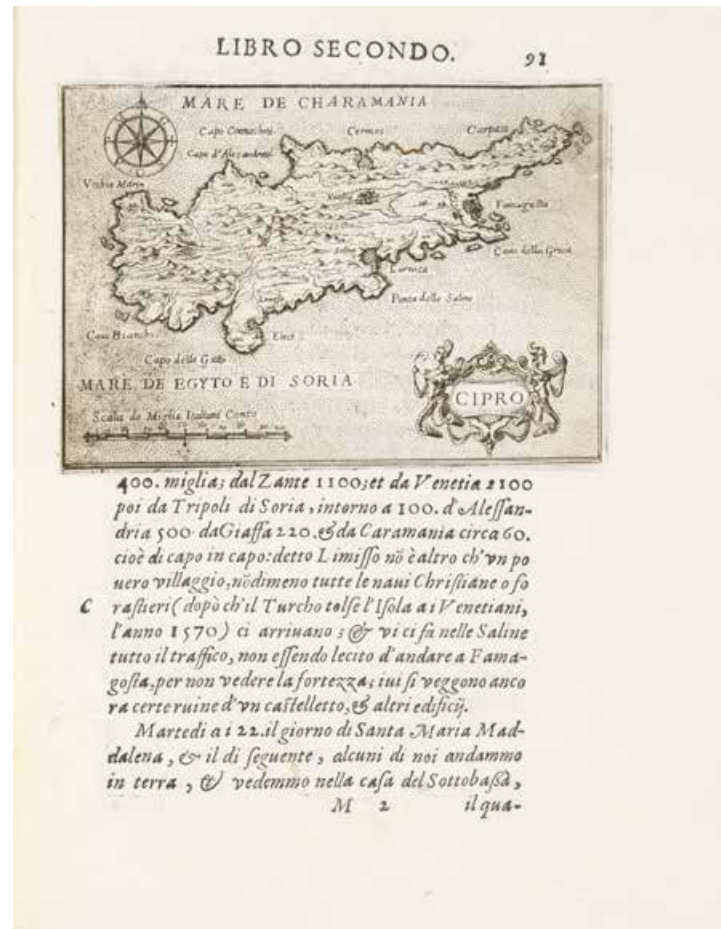 LIBRO SECONDO. 91
MARE DE CHARAMANIA
Cerines Carpass
Capo d'Alexandreti
Vechio Marin
Famagusta
Capo della Greca
Larnica
Punta delle Saline
Capo Bianchi
Capo delle Gatte
MARE DE EGYTO E DI SORIA
CIPRO
Scala de Miglia Italiani Cento
400. miglia; dal Zante 1100; et da Venetia 2100
poi da Tripoli di Soria, intorno a 100. d'Alessan-
dria 500 da Giaffa 220. & da Caramania circa 60.
cioè di capo in capo: detto Limisso nõ è altro ch'vn po
uero villaggio, nõdimeno tutte le naui Christiane o fo
C rastieri (dopò ch'il Turcho tolse l'Isola a i Venetiani,
l'anno 1570) ci arriuano; & vi ci fà nelle Saline
tutto il traffico, non essendo lecito d'andare a Fama-
gosta, per non vedere la fortezza; iui si veggono anco
ra certe ruine d'vn castelletto, & altri edificij.
Martedi a i 22. il giorno di Santa Maria Mad-
dalena, & il di seguente, alcuni di noi andammo
in terra, & vedemmo nella casa del Sottobassà,
M 2 il qua-